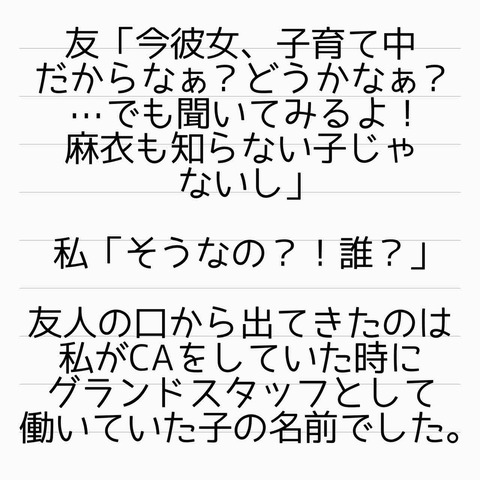 友「今彼女、子育て中
だからなぁ？どうかなぁ？
…でも聞いてみるよ！
麻衣も知らない子じゃ
ないし」
私「そうなの？！誰？」
友人の口から出てきたのは
私がCAをしていた時に
グランドスタッフとして
働いていた子の名前でした。